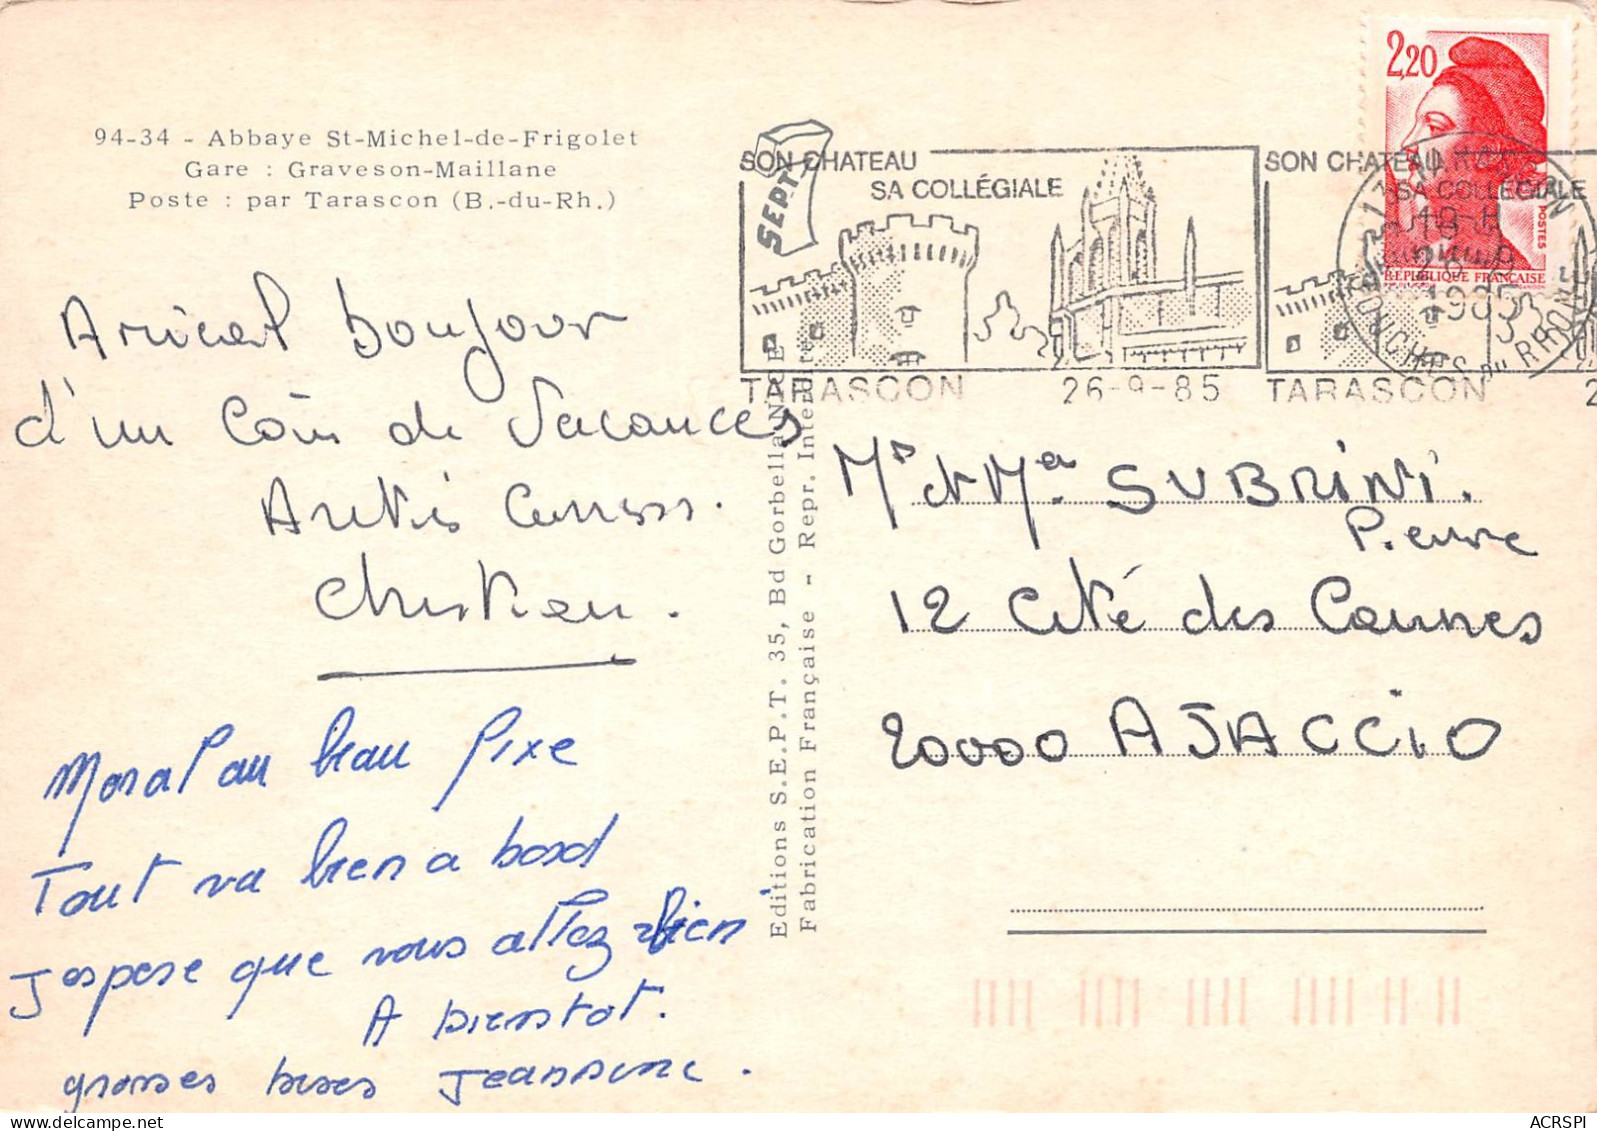 94-34 - Abbaye St-Michel-de-Frigolet
Gare : Graveson-Maillane
Poste : par Tarascon (B.-du-Rh.)
2,20
RÉPUBLIQUE FRANÇAISE
POSTES
SEPT
SON CHATEAU
SA COLLÉGIALE
TARASCON
26-9-85
SON CHATEAU
SA COLLÉGIALE
TARASCON
2
19 H
1985
BOUCHES DU RHONE
Amical bonjour
d'un coin de Vacances
Christian.
Moral au beau fixe
Tout va bien a bord
J'espere que vous allez bien
A bientot.
grosses bises Jeannine.
Editions S.E.P.T. 35, Bd Gorbella NICE
Fabrication Française - Repr. Interdite
Mr et Me SUBRINI.
Pierre
12 Cité des Cannes
20000 AJACCIO
ACRSPI